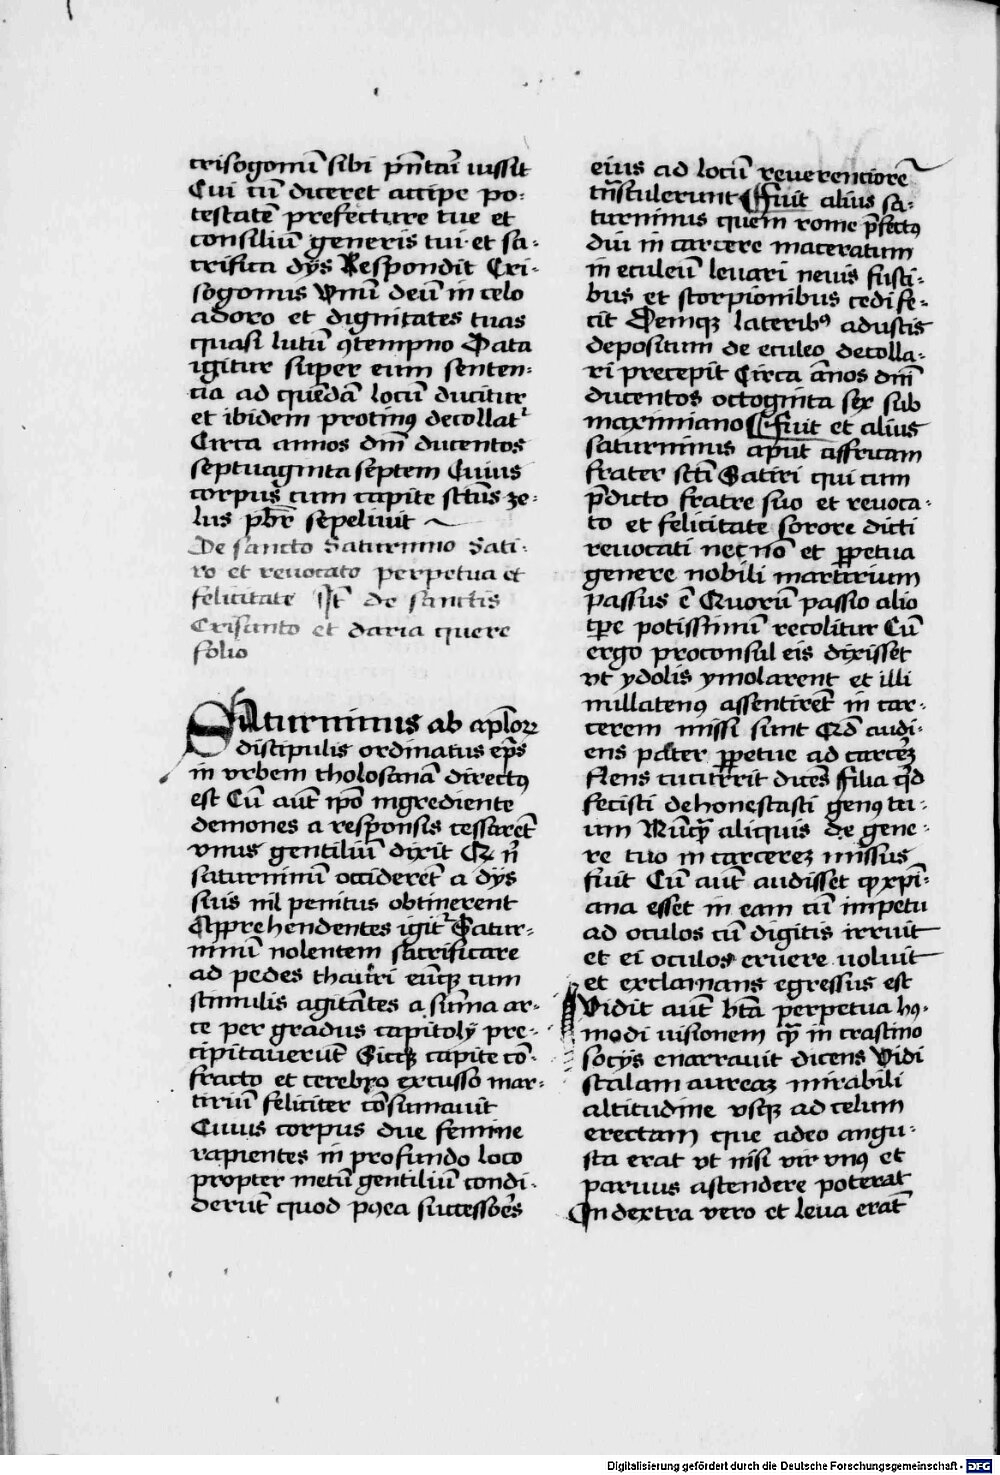 crisogonū sibi pn̄tari iussit
Cui cū diceret accipe po:
testatē prefecture tue et
consiliū generis tui et sa:
crifica dijs Respondit Cri:
sogonus Vnū deū in celo
adoro et dignitates tuas
quasi lutū ꝯtempno Data
igitur super eum senten:
cia ad quēdā locū ducitur
et ibidem protinꝰ decollatʳ
Circa annos dnī ducentos
septuaginta septem Cuius
corpus cum capite sctūs ze:
lus pbr̄ sepeliuit
De sancto Saturnino Sati:
ro et reuocato perpetua et
felicitate Itē de sanctis
Crisanto et daria quere
folio
SAturninus ab apl̄oꝝ
discipulis ordinatus ep̄s
in vrbem tholosanā directꝰ
est Cū aūt ipō ingrediente
demones a responsis cessarēt
vnus gentiliū dixit Qꝫ nī
saturninū occiderēt a dijs
suis nil penitus obtinerent
Apprehendentes igitʳ Satur:
ninū nolentem sacrificare
ad pedes thauri eūqꝫ cum
stimulis agitātes a sūma ar:
ce per gradus capitolij pre:
cipitauerūt Sicqꝫ capite cō:
fracto et cerebro excusso mar:
tiriū feliciter cōsumauit
Cuius corpus due femine
rapientes in profundo loco
propter metū gentiliū condi:
derūt quod pꝰea successōes
eius ad locū reuerenciorē
trānstulerunt Fuit alius sa:
turninus quem rome p̄fectꝰ
diu in carcere maceratum
in eculeū leuari neruis fusti:
bus et scorpionibus cedi fe:
cit Demqꝫ lateribꝰ adustis
depositum de eculeo decolla:
ri precepit Circa ānos dnī
ducentos octoginta sex sub
maximiano Fuit et alius
saturninus aput affricam
frater sctī Satiri qui cum
p̄dicto fratre suo et reuoca:
to et felicitate sorore dicti
reuocati nec nō et ꝑpetua
genere nobili martirium
passus ē Quorū passio alio
tp̄e potissimū recolitur Cū
ergo proconsul eis dixisset
vt ydolis ymolarent et illi
nullatenꝰ assentirēt in car:
cerem missi sunt Qd̄ audi:
ens pater ꝑpetue ad carcerꝫ
flens cucurrit dicēs Filia qd̄
fecisti dehonestasti genꝰ tu:
um Nūqꝫ aliquis de gene:
re tuo in carcerez missus
fuit Cū aūt audisset ꝙ xpī:
ana esset in eam cū impetu
ad oculos cū digitis irruit
et ei oculos eruere uoluit
et exclamans egressus est
Vidit aūt btā perpetua hꝰ:
modi uisionem qꝫ in crastino
socijs enarrauit dicens Vidi
scalam aureaz mirabili
altitudine vsqꝫ ad celum
erectam que adeo angu:
sta erat vt nisi vir vnꝰ et
paruus ascendere poterat
In dextra vero et leua erāt
Digitalisierung gefördert durch die Deutsche Forschungsgemeinschaft - DFG